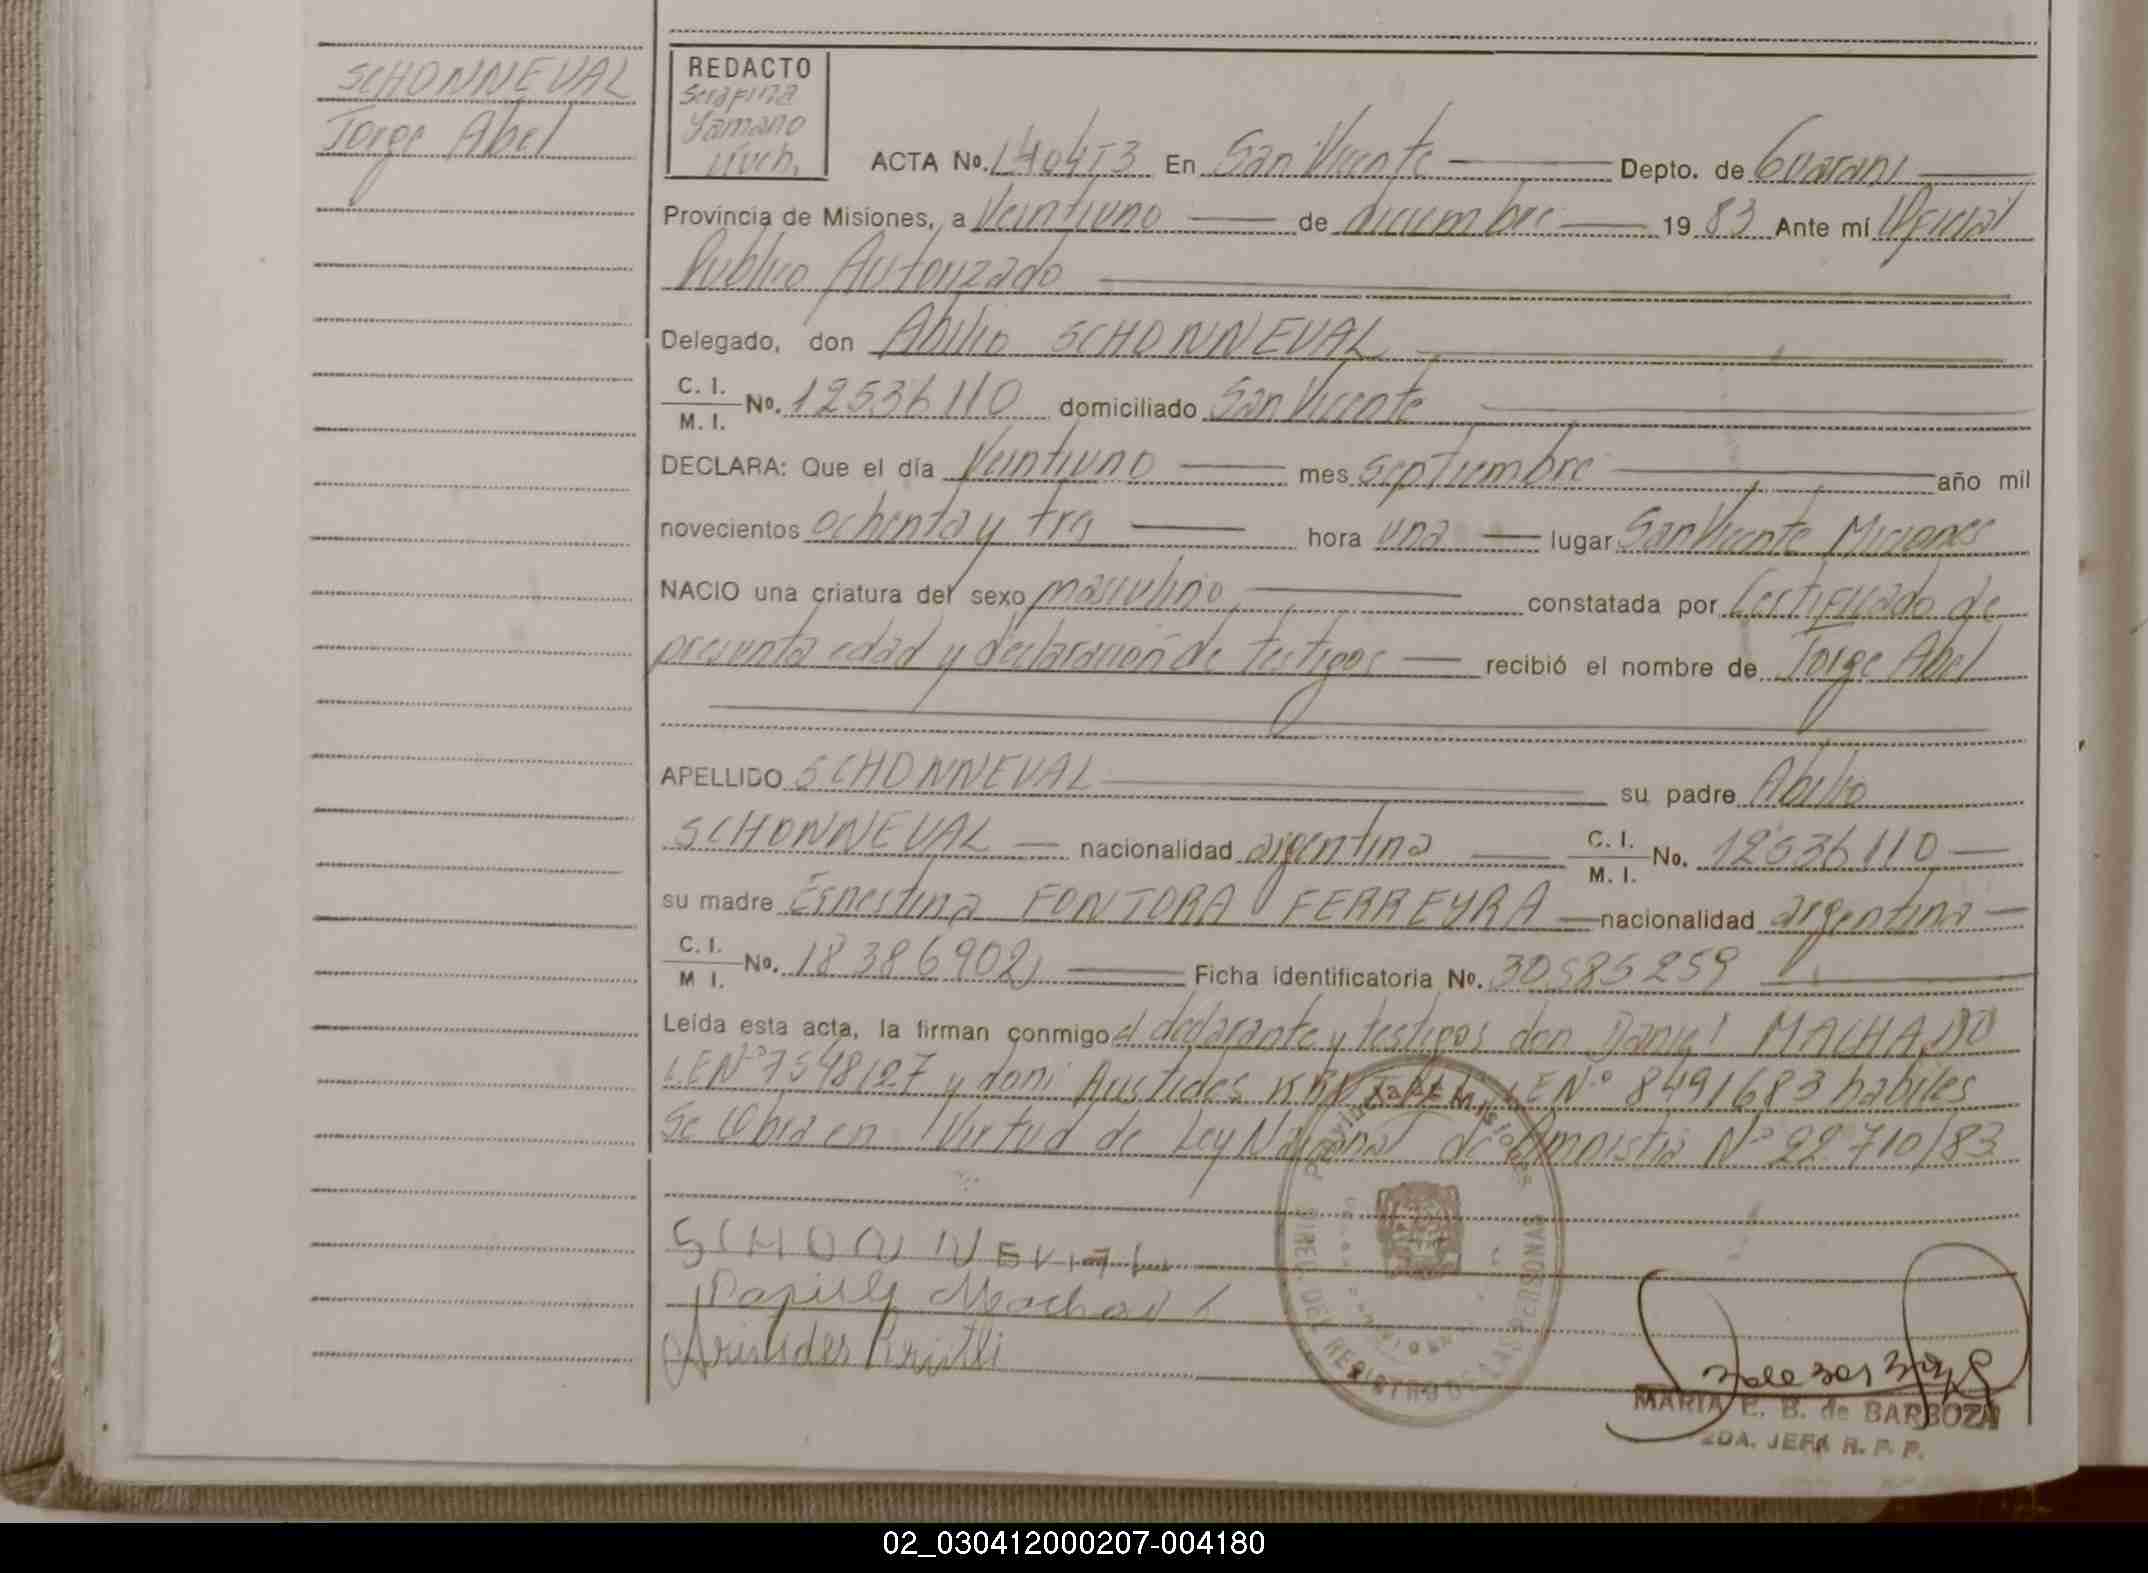 SCHONNEVAL
Jorge Abel
REDACTO
Serafina
Yamano
ACTA No. En San Vicente Depto. de Guaraní
Provincia de Misiones, a Veintiuno de diciembre 19 83 Ante mí Oficial
Publico Autorizado
Delegado, don Abilio SCHONNEVAL
C. I.
M. I. No. 12536110 domiciliado San Vicente
DECLARA: Que el día Veintiuno mes septiembre año mil
novecientos ochenta y tres hora una lugar San Vicente Misiones
NACIO una criatura del sexo masculino constatada por Certificado de
presunta edad y declaración de testigos recibió el nombre de Jorge Abel
APELLIDO SCHONNEVAL su padre Abilio
SCHONNEVAL nacionalidad argentina C. I.
M. I. No. 12536110
su madre Ernestina FONTORA FERREYRA nacionalidad argentina
C. I.
M I. No. 18386902 Ficha identificatoria No. 30585259
Leída esta acta, la firman conmigo el declarante y testigos don Daniel MACHADO
LE Nº 7548127 y don Aristides LE Nº 8491683 habiles
Se Labra en Virtud de Ley Nacional de Amnistia Nº 22710/83
SCHONNEVAL
Machado
Aristides
DIREC. DEL REGISTRO DE LAS PERSONAS
MARIA E. B. de BARBOZA
2DA. JEFA R. P. P.
02_030412000207-004180